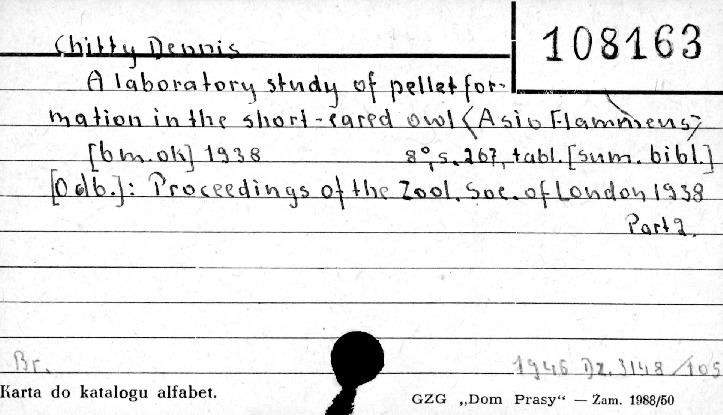 108163
Chitty Dennis
A laboratory study of pellet for-
mation in the short-eared owl <Asio Flammeus>
[b.m.ok] 1938 8°, s. 267, tabl. [sum. bibl.]
[Odb.]: Proceedings of the Zool. Soc. of London 1938
Part 2.
Br. 1946 Dz. 3148/105
Karta do katalogu alfabet. GZG „Dom Prasy“ — Zam. 1988/50